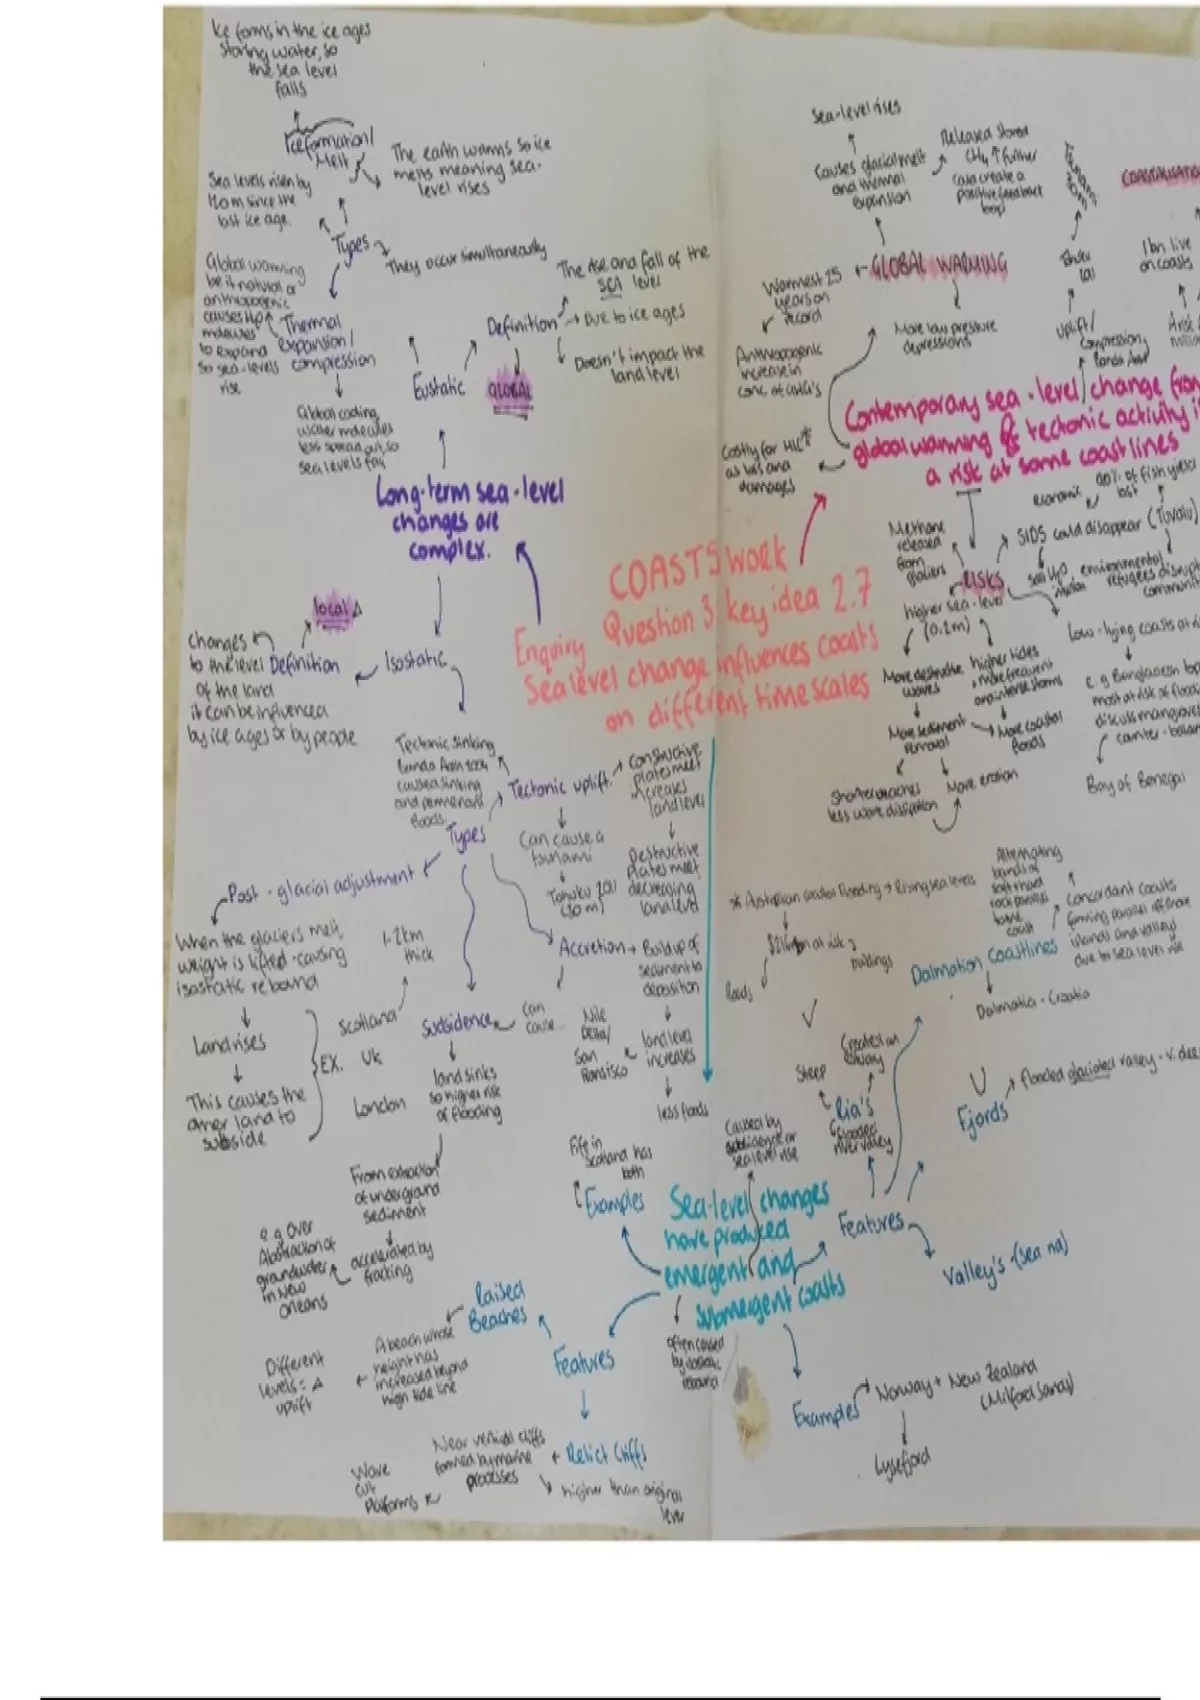 Ice forms in the ice ages
storing water, so
the sea level
falls
Ice formation/
Melt
The earth warms so ice
melts meaning sea-
level rises
Sea levels risen by
120m since the
last ice age.
Types
They occur simultaneously
Global warming
be it natural or
anthropogenic
causes H2O
molecules
to expand
so sea-levels
rise
Thermal
expansion/
compression
Global cooling,
water molecules
less spread out, so
sea levels fall
Eustatic
Definition
GLOBAL
The rise and fall of the
SEA level
Due to ice ages
Doesn't impact the
land level
Long-term sea-level
changes are
complex.
COASTS WORK
Enquiry Question 3: key idea 2.7
Sea level change influences coasts
on different timescales
local
Changes
to the level
of the land
it can be influenced
by ice ages or by people
Definition
Isostatic
Types
Tectonic sinking
Banda Aceh 2004
caused sinking
and permenant
floods
Tectonic uplift
Constructive
plates meet
increases
land level
Destructive
plates meet,
decreasing
land level
Can cause a
tsunami
Tohuku 2011
Post-glacial adjustment
When the glaciers melt,
weight is lifted causing
isostatic rebound
Land rises
This causes the
other land to
subside
EX.
Scotland
UK
London
1-2km
thick
Subsidence
land sinks
so higher risk
of flooding
From extraction
of underground
sediment
accelerated by
fracking
e.g Over
Abstraction of
groundwater
in New
Orleans
Accretion
Build up of
sediment to
deposition
can
cause...
Nile
Delta/
San
Fransisco
land level
increases
less floods
Sea-level rises
Causes glacial melt
and thermal
expansion
Released stored
CH4 ↑ further
can create a
positive feedback
loop
GLOBAL WARMING
Warmest 25
years on
record
Anthropogenic
increase in
conc of GHG's
More low pressure
depressions
Contemporary sea-level change from
global warming & tectonic activity is
a risk at some coastlines
Costly for HIC*
as loss and
damages
uplift/
1bn live
on coasts
RISKS
Methane
released
from
glaciers
SIDS could disappear (Tuvalu)
economic
of fish yield
lost
environmental
refugees disrupt
higher sea-level
(0.2m)
More destructive
waves
higher tides
+ more frequent
and intense storms
More sediment
removal
More coastal
floods
Shorter beaches
less wave dissipation
More erosion
Low-lying coasts at
e.g Bangladesh
most at risk of
discuss mangroves
Bay of Benegal
* Australian coastal flooding → Rising sea levels
at risk
buildings
Roads
Dalmation Coastlines
Alternating
bands of
soft + hard
rock parallel
to the
coast
Concordant coasts
forming parallel offshore
islands and valleys
due to sea level rise
Dalmatia - Croatia
V
U
Fjords
flooded glaciated valley - v. deep
Steep
Ria's
flooded
river valley
Caused by
subsidence or
sea level rise
Sea-level changes
have produced
emergent and
submergent coasts
Features
Valley's - (sea na)
Examples
Norway + New Zealand
(Milford Sands)
Lysefjord
often caused
by isostatic
rebound
Examples
Fife in
Scotland has
both
Features
Raised
Beaches
A beach whose
height has
increased beyond
high tide line
Different
levels = Δ
uplift
Relict Cliffs
Near vertical cliffs
formed by marine
processes
higher than original
level
Wave
cut
Platforms